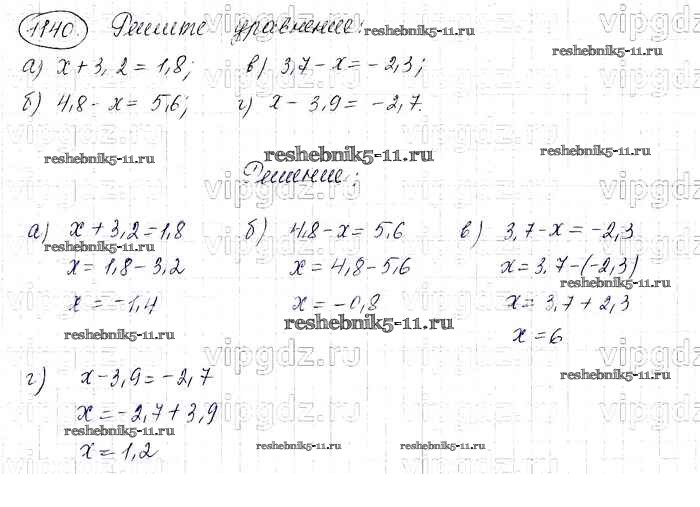 1140. Решите уравнение:
reshebnik5-11.ru
vipgdz.ru
а) x+3,2=1,8; в) 3,7-x=-2,3;
reshebnik5-11.ru
б) 4,8-x=5,6; г) x-3,9=-2,7.
reshebnik5-11.ru reshebnik5-11.ru reshebnik5-11.ru
Решение:
vipgdz.ru vipgdz.ru vipgdz.ru
а) x+3,2=1,8 б) 4,8-x=5,6 в) 3,7-x=-2,3
reshebnik5-11.ru
x=1,8-3,2 x=4,8-5,6 x=3,7-(-2,3)
reshebnik5-11.ru
x=-1,4 x=-0,8 x=3,7+2,3
reshebnik5-11.ru reshebnik5-11.ru
x=6
vipgdz.ru vipgdz.ru vipgdz.ru
г) x-3,9=-2,7
reshebnik5-11.ru
x=-2,7+3,9
reshebnik5-11.ru
x=1,2
reshebnik5-11.ru reshebnik5-11.ru